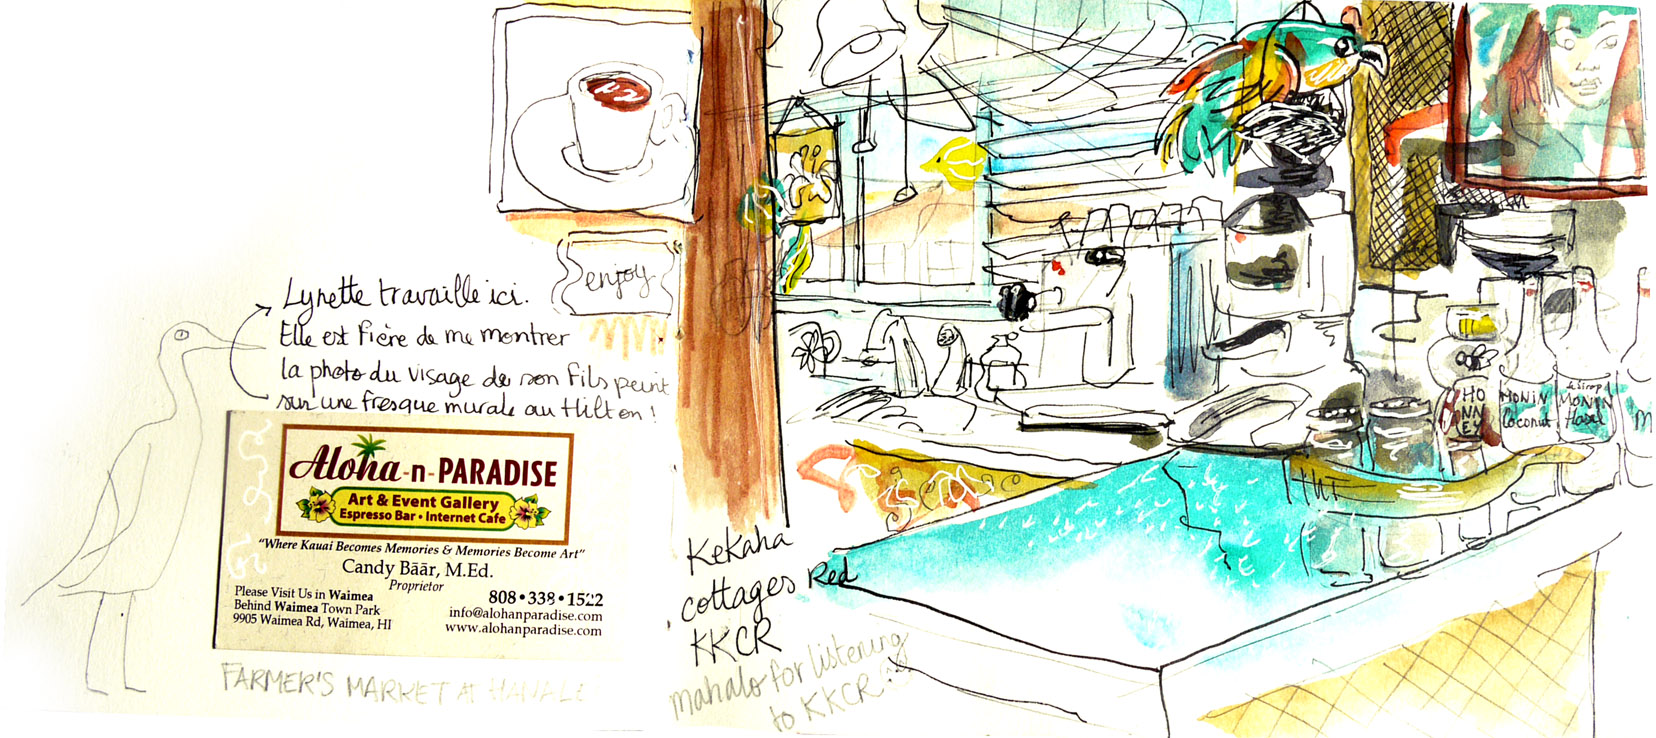 enjoy
Lynette travaille ici.
Elle est fière de me montrer
la photo du visage de son fils peint
sur une fresque murale au Hilton !
Aloha-n-PARADISE
Art & Event Gallery
Espresso Bar • Internet Cafe
"Where Kauai Becomes Memories & Memories Become Art"
Candy Bāār, M.Ed.
Proprietor
Please Visit Us in Waimea
Behind Waimea Town Park
9905 Waimea Rd, Waimea, HI
808•338•1522
info@alohanparadise.com
www.alohanparadise.com
FARMER'S MARKET AT HANALE
Kekaha
cottages Red
KKCR
mahalo for listening
to KKCR!
HO
NN
EY
MONIN
Coconut
le sirop
MONIN
Hasel
M